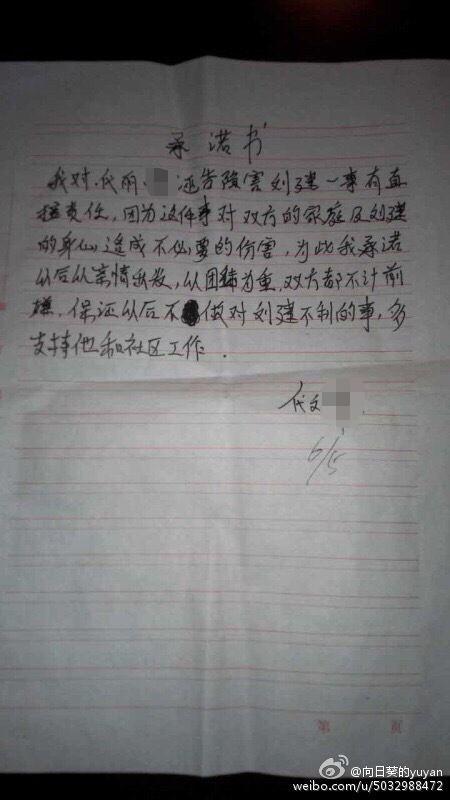 承诺书
我对代丽 诬告陷害刘建一事有直
接责任,因为这件事对双方的家庭及刘建
的身心造成不必要的伤害,为此我承诺
以后从亲情出发,以团结为重,双方都不计前
嫌,保证以后不做对刘建不利的事,多
支持他和社区工作.
代文
6/5
第 页
@向日葵的yuyan
weibo.com/u/5032988472